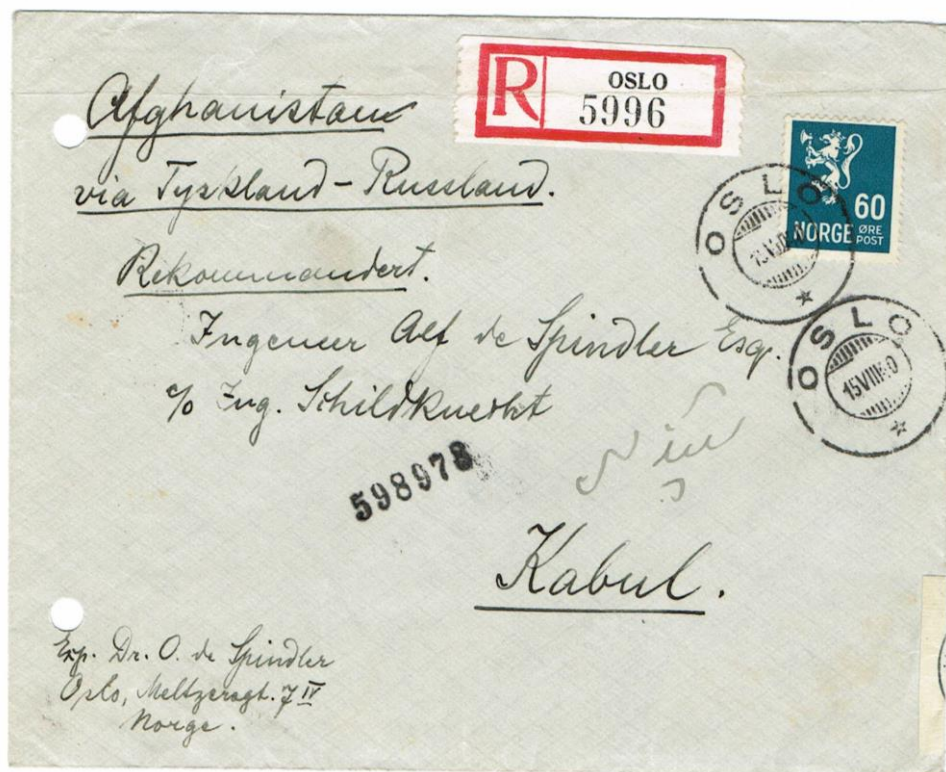 Afghanistan
via Tyskland - Russland.
Rekommandert.
R OSLO
5996
60
NORGE ØRE
POST
OSLO
OSLO
15 VIII 40
Ingeneur Alf de Spindler Esq.
c/o Ing. Schildknecht
598978
Kabul.
Exp. Dr. O. de Spindler
Oslo, Meltzersgt. 7 IV
Norge.